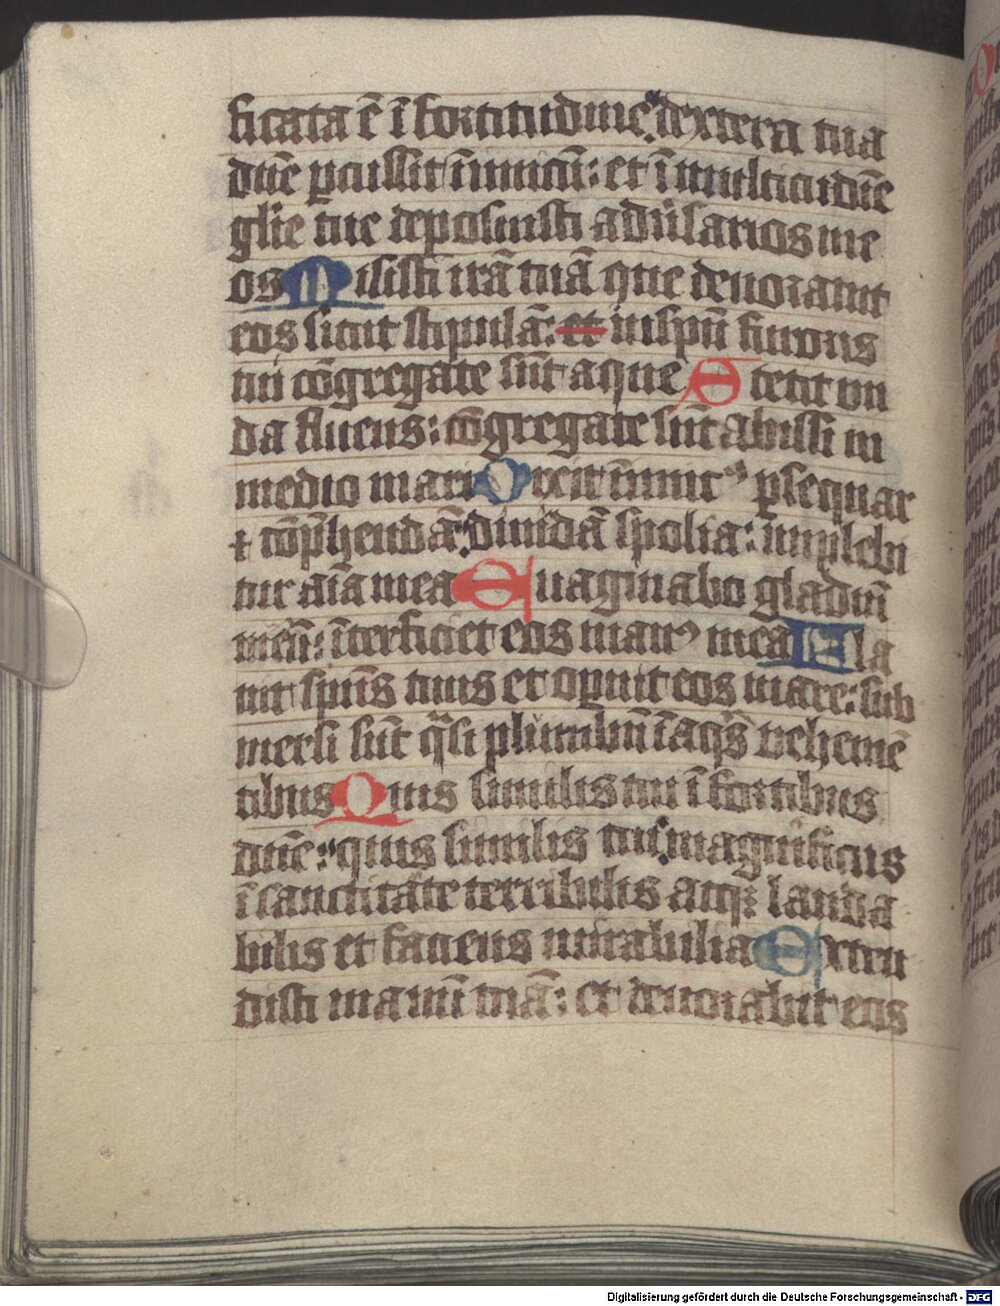 ficata ē ī fortitudine: dextera tua
dn̄e ꝑcussit īnimicū: et ī multitudīe
gl̄ie tue deposuisti adūsarios me
os Misisti irā tuā que deuorauit
eos sicut stipulā: et in sp̄u furoris
tui cōgregate sūt aque Stetit vn
da fluens: cōgregate sūt abissi in
medio mari Dixit inimicꝰ ꝑsequar
⁊ cōp̄hendā: diuidā spolia: implebi
tur aīa mea Euaginabo gladiū
meū: īterficiet eos manꝰ mea Fla
uit sp̄us tuus et operuit eos mare: sub
mersi sūt q̄si plumbū ī aq̄s vehemē
tibus Quis similis tui ī fortibus
dn̄e: quis similis tui: magnificus
ī sanctitate terribilis atqꝫ lauda
bilis et faciens mirabilia Exten
disti manū tuā: et deuorabit eos
Digitalisierung gefördert durch die Deutsche Forschungsgemeinschaft - DFG